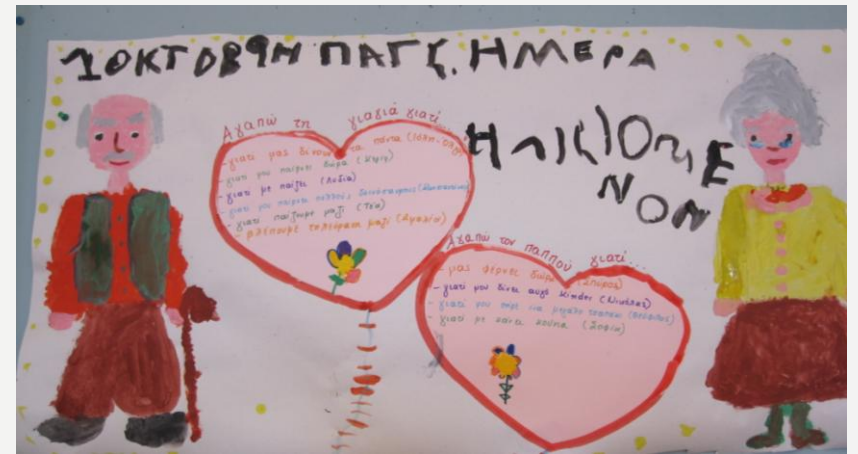 1 ΟΚΤΩΒΡΗ ΠΑΓΚ. ΗΜΕΡΑ
ΗΛΙΚΙΩΜΕ
ΝΩΝ
Αγαπώ τη γιαγιά γιατί...
-γιατί μας δίνει τα πάντα
-γιατί μου παίρνει δώρα
-γιατί με παίζει (Λυδία)
-γιατί μου παίρνει πολλούς
-γιατί παίζουμε μαζί (Τέα)
-βλέπουμε τηλεόραση μαζί (Αμαλία)
Αγαπώ τον παππού γιατί...
-μας φέρνει δώρα (Σπύρος)
-γιατί μου δίνει αυγά kinder (Νικόλας)
-γιατί μου πήρε ένα μεγάλο
-γιατί με κάνει κούνια (Σοφία)